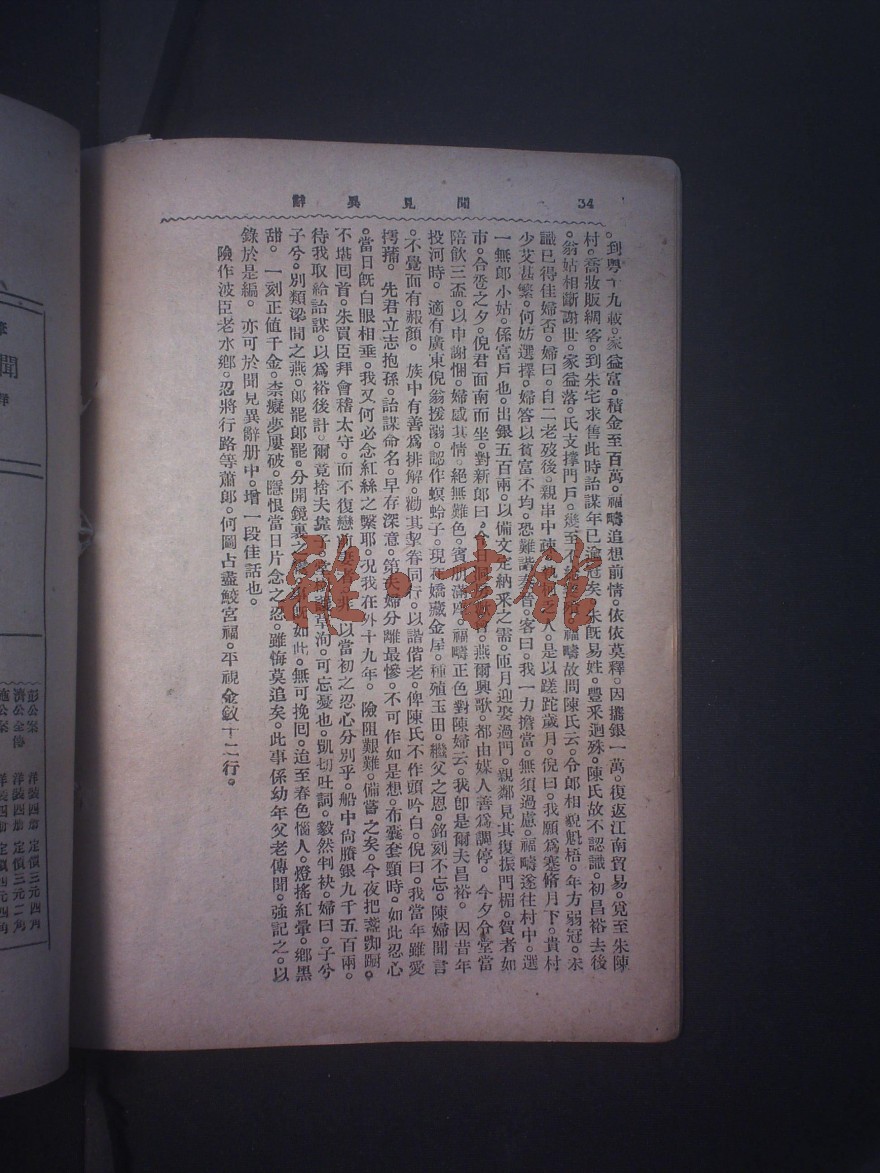 聞見異辭 34
。到粵十九載。家益富。積金至百萬。福疇追想前情。依依莫釋。因攜銀一萬。復返江南貿易。覓至朱陳
村。喬妝販綢客。到朱宅求售此時詒謀年已逾冠矣。朱旣易姓。豐采迥殊。陳氏故不認識。初昌裕去後
。翁姑相斷謝世。家益落。氏支撐門戶。幾至不 福疇故問陳氏云。令郎相貌魁梧。年方弱冠。未
識已得佳婦否。婦曰。自二老歿後。親串中疎 人。是以蹉跎歲月。倪曰。我願爲蹇脩月下。貴村
少艾甚繁。何妨選擇。婦客以貧富不均。恐難諧 客曰。我一力擔當。無須過慮。福疇遂往村中。選
一無郎小姑。係富戶也。出銀五百兩。以備文定納采之需。匝月迎娶過門。親鄰見其復振門楣。賀者如
市。合卺之夕。倪君面南而坐。對新郎曰。今日 燕爾興歌。都由媒人善爲調停。今夕令堂當
陪飲三盃。以申謝悃。婦感其情。絕無難色。賓朋滿座。福疇正色對陳婦云。我卽是爾夫昌裕。因昔年
投河時。適有廣東倪翁援溺。認作螟蛉子。現 嬌藏金屋。種殖玉田。繼父之恩。銘刻不忘。陳婦聞言
。不覺面有赧顏。族中有善爲排解。勸其挈眷同行。以諧偕老。俾陳氏不作頭吟白。倪曰。我當年雖愛
摴蒱。先君立志抱孫。詒謀命名。早存深意。第夫婦分離最慘。不可作如是想。布囊套頸時。如此忍心
。當日旣白眼相垂。我又何必念紅絲之繫耶。况我在外十九年。險阻艱難。備嘗之矣。今夜把盞踟蹰。
不堪囘首。朱買臣拜會稽太守。而不復戀 以當初之忍心分別乎。船中尙賸銀九千五百兩。
待我取給詒謀。以爲裕後計。爾竟捨夫靠子 草洵可忘憂也。凱切吐詞。毅然判袂。婦曰。子兮
子兮。別類梁間之燕。郞罷郞罷。分開鏡裏之 如此。無可挽囘。迨至春色惱人。燈搖紅暈。鄕黑
甜。一刻正値千金。柰癡夢屢破。隱恨當日片念之忍。雖悔莫追矣。此事係幼年父老傳聞。強記之。以
錄於是編。亦可於聞見異辭册中。增一段佳話也。
險作波臣老水鄕。忍將行路等蕭郞。何圖占盡鮫宮福。平視金釵十二行。
雜·書館
聞
彭公案 洋裝四册 定價三元四角
濟公全傳 洋裝四册 定價三元二角
施公案 洋裝四册 定價四元四角